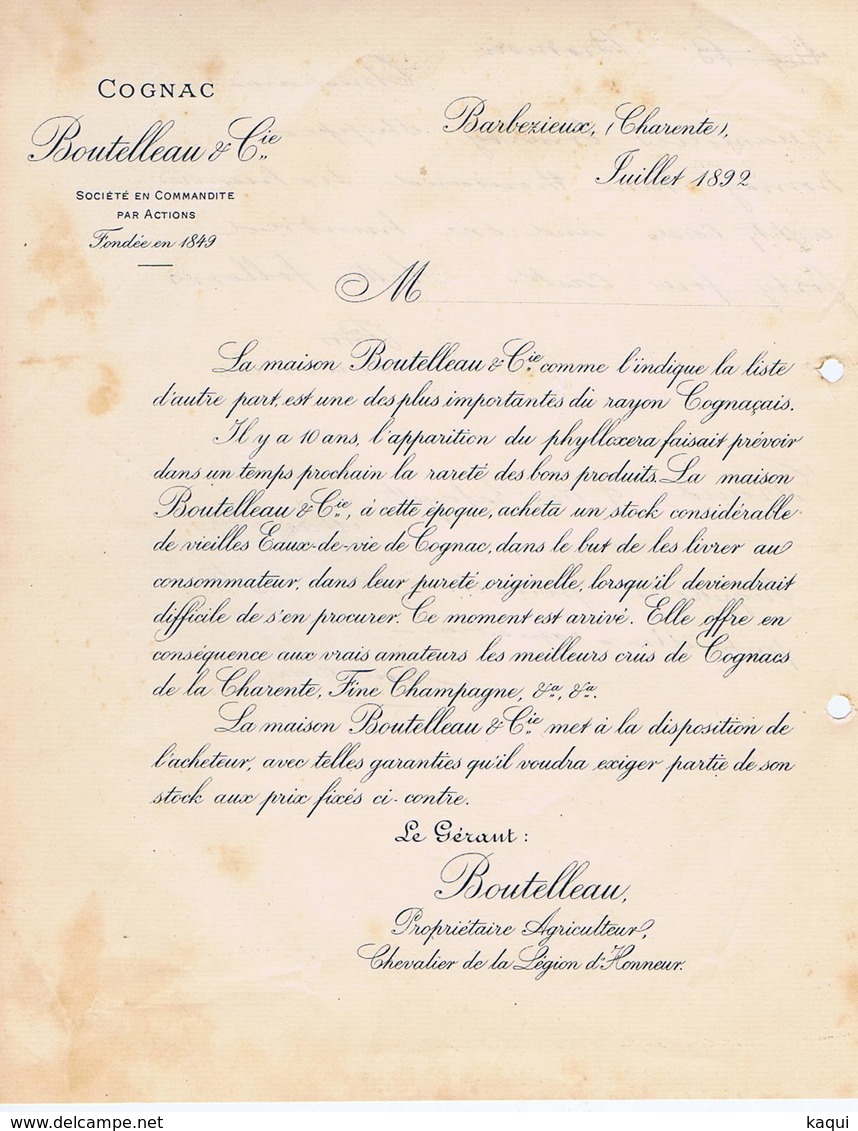 COGNAC
Boutelleau & Cie
SOCIÉTÉ EN COMMANDITE
PAR ACTIONS
Fondée en 1849
Barbezieux, (Charente),
Juillet 1892
M
La maison Boutelleau & Cie comme l'indique la liste
d'autre part, est une des plus importantes du rayon Cognaçais.
Il y a 10 ans, l'apparition du phylloxera faisait prévoir
dans un temps prochain la rareté des bons produits. La maison
Boutelleau & Cie, à cette époque, acheta un stock considérable
de vieilles Eaux-de-vie de Cognac, dans le but de les livrer au
consommateur, dans leur pureté originelle, lorsqu'il deviendrait
difficile de s'en procurer. Ce moment est arrivé. Elle offre en
conséquence aux vrais amateurs les meilleurs crûs de Cognacs
de la Charente, Fine Champagne, &a, &a.
La maison Boutelleau & Cie met à la disposition de
l'acheteur, avec telles garanties qu'il voudra exiger partie de son
stock aux prix fixés ci-contre.
Le Gérant :
Boutelleau,
Propriétaire Agriculteur,
Chevalier de la Légion d'Honneur.
kaqui